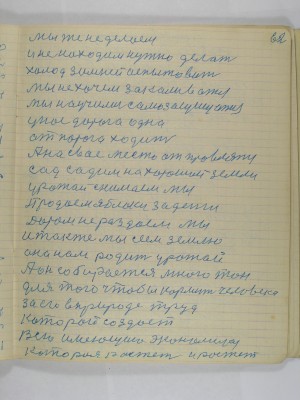 62
мы же не делаем
и не находим нужно делат
холод зимний испытоват
мы нехочем закаливатя
мы научили самозащищатя
у нас дорога одна
от порога ходит
А на свае место отпровляти
сад садим на хорошой земли
урожай снимаем мы
Продаем яблоки за денги
Даром не раздаем мы
и также мы сеем землю
она нам родит урожай
А он собирается много тон
для того чтобы кормит человека
за его в природе труд
которой создает
Всю имеющию экономику
которая растет и растет